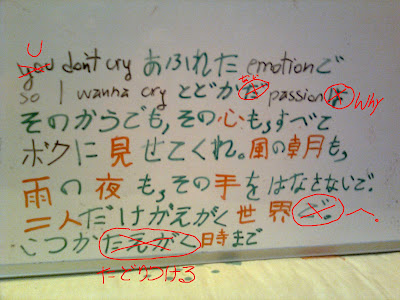 U
you don't cry あふれた emotionで
so I wanna cry とどかな passionは why
そのかうでも,その心も,すべて
ボクに見せてくれ。風の朝も,
雨の夜も,その手をはなさないで.
二人だけがえがく世界で。へ.
いつかたえがく日時まで
たどりつける